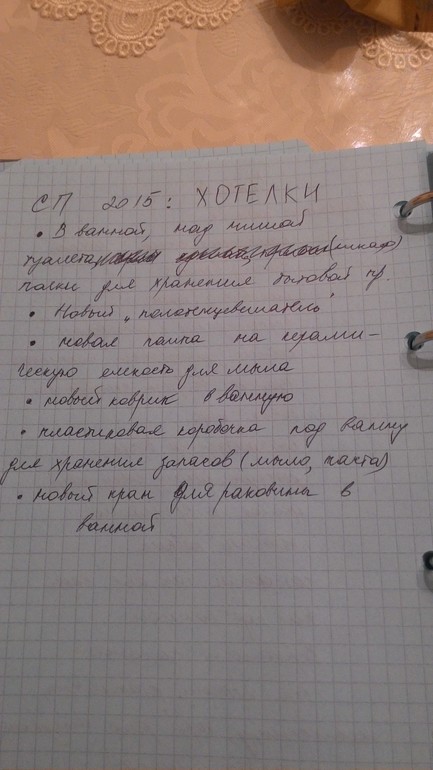 СП 2015: ХОТЕЛКИ
• В ванной, над нишей
туалета (шкаф)
полки для хранения бытовой
• Новый „полотенцевешатель"
• новая помпа на керами-
ческую емкость для мыла
• новый коврик в ванную
• пластиковая коробочка под ванну
для хранения запасов (мыло, паста)
• новый кран для раковины в
ванной